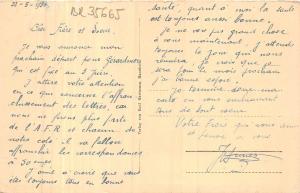 22-5-1930
BR35665
Cher Frère et Soeur.
Je vous annonce mon
prochain départ pour Gérardmer
qui est fixé au 3 juin.
J'attire votre attention
en ce qui concerne l'affran-
chissement des lettres, car
nous ne ferons plus parti
de l'A.F.R et chacun de
notre coté il va falloir
affranchir les correspondances
à 50 cmes
J'aime à croire que vous
êtes toujours tous en bonne
santé, quand à moi la santé
est toujours aussi bonne.
Je ne vois pas grand chose
à vous maintenant j'attends
toujours le jour qui nous
rendra libre, ce sera
pour le mois prochain
j'ai bonne espoir.
Je termine donc ma
carte en vous embrassant
tous de loin
Votre frère qui vous aime
et pense à vous